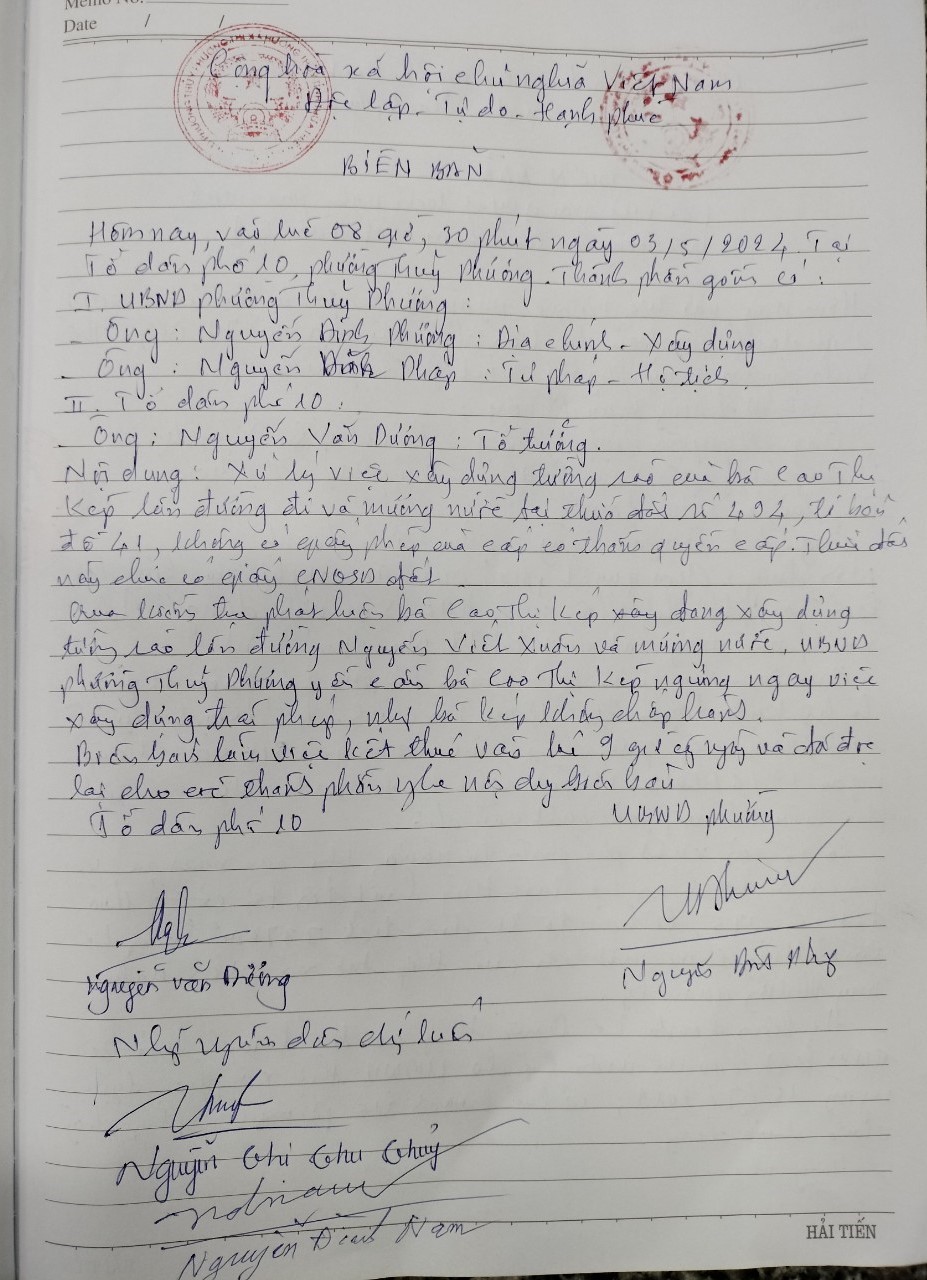 Memo No.
Date / /
Cộng hòa xã hội chủ nghĩa Việt Nam
Độc lập - Tự do - Hạnh phúc
BIÊN BẢN
Hôm nay, vào lúc 08 giờ, 30 phút ngày 03/5/2024. Tại
Tổ dân phố 10, phường Thuỷ Phương. Thành phần gồm có :
I. UBND phường Thuỷ Phương :
- Ông : Nguyễn Đình Phương : Địa chính - Xây dựng
- Ông : Nguyễn Pháp : Tư pháp - Hộ tịch
II. Tổ dân phố 10 :
- Ông : Nguyễn Văn Dương : Tổ trưởng.
Nội dung : Xử lý việc xây dựng tường rào của bà Cao Thị
Kép lấn đường đi và mương nước tại thửa đất số 494, tờ bản
đồ 41, không có giấy phép của cấp có thẩm quyền cấp. Thửa đất
này chưa có giấy CNQSD đất
Qua kiểm tra phát hiện bà Cao Thị Kép đang xây dựng
tường rào lấn đường Nguyễn Viết Xuân và mương nước. UBND
phường Thuỷ Phương yêu cầu bà Cao Thị Kép ngừng ngay việc
xây dựng trái phép, nhưng bà Kép không chấp hành.
Biên bản làm việc kết thúc vào lúc 9 giờ cùng ngày và đã đọc
lại cho các thành phần nghe nội dung biên bản
Tổ dân phố 10 UBND phường
Nguyễn Văn Dưỡng
Nguyễn
Những người dân
Nguyễn Thị Thu Thủy
Nguyễn Đình Nam
HẢI TIẾN